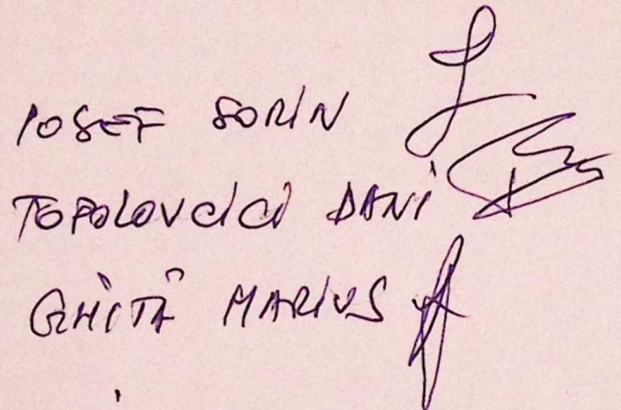 IOSEF SORIN
TOPOLOVCICI DANI
GHITĂ MARIUS